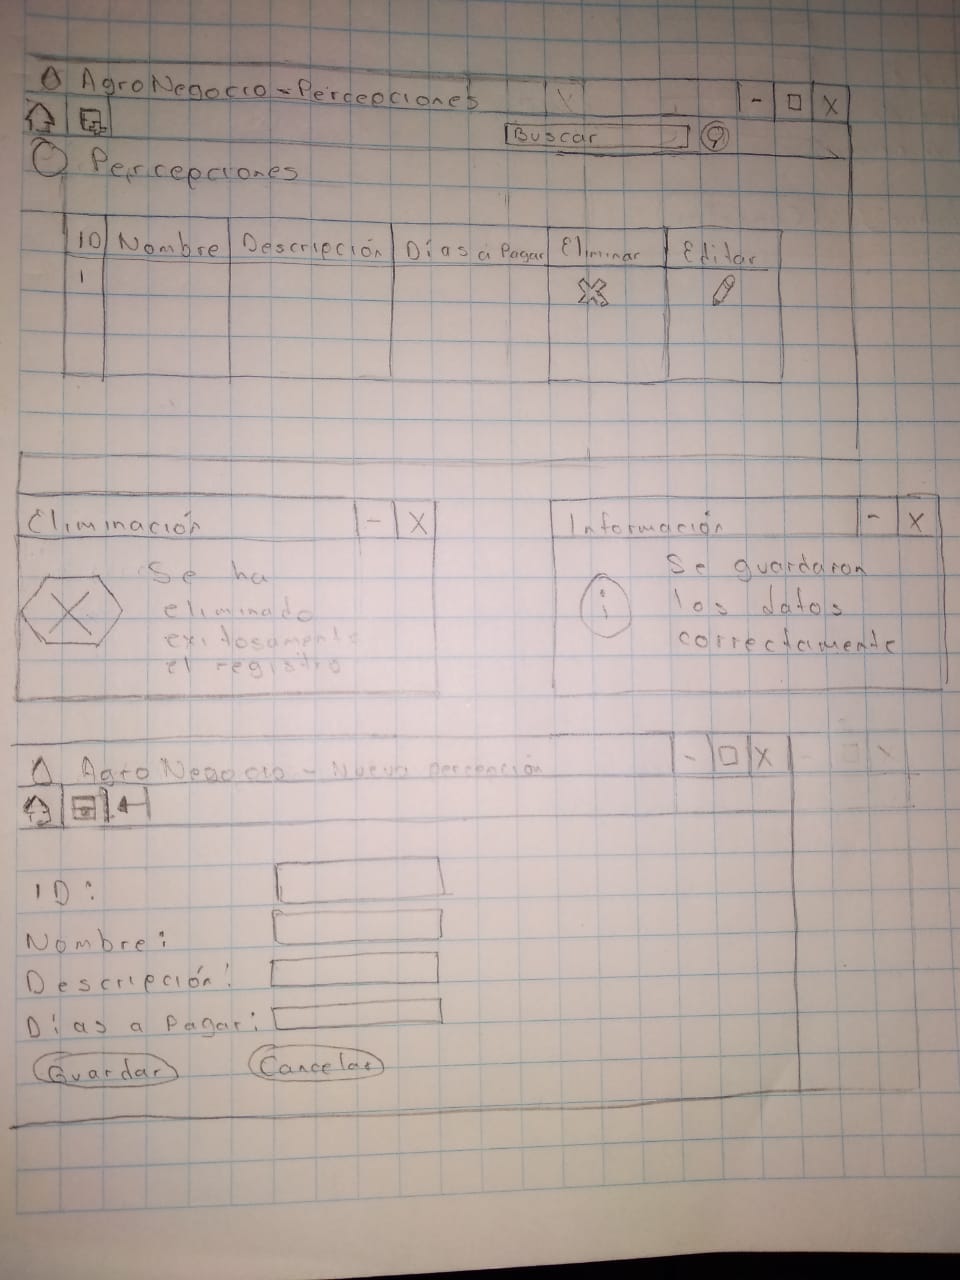 AgroNegocio - Percepciones - □ X
Buscar
Percepciones
ID Nombre Descripción Días a Pagar Eliminar Editar
1
Eliminación - X
Se ha
eliminado
exitosamente
el registro
Información - X
i
Se guardaron
los datos
correctamente
Agro Negocio - Nueva percepción - □ X
ID:
Nombre:
Descripción:
Días a Pagar:
Guardar Cancelar